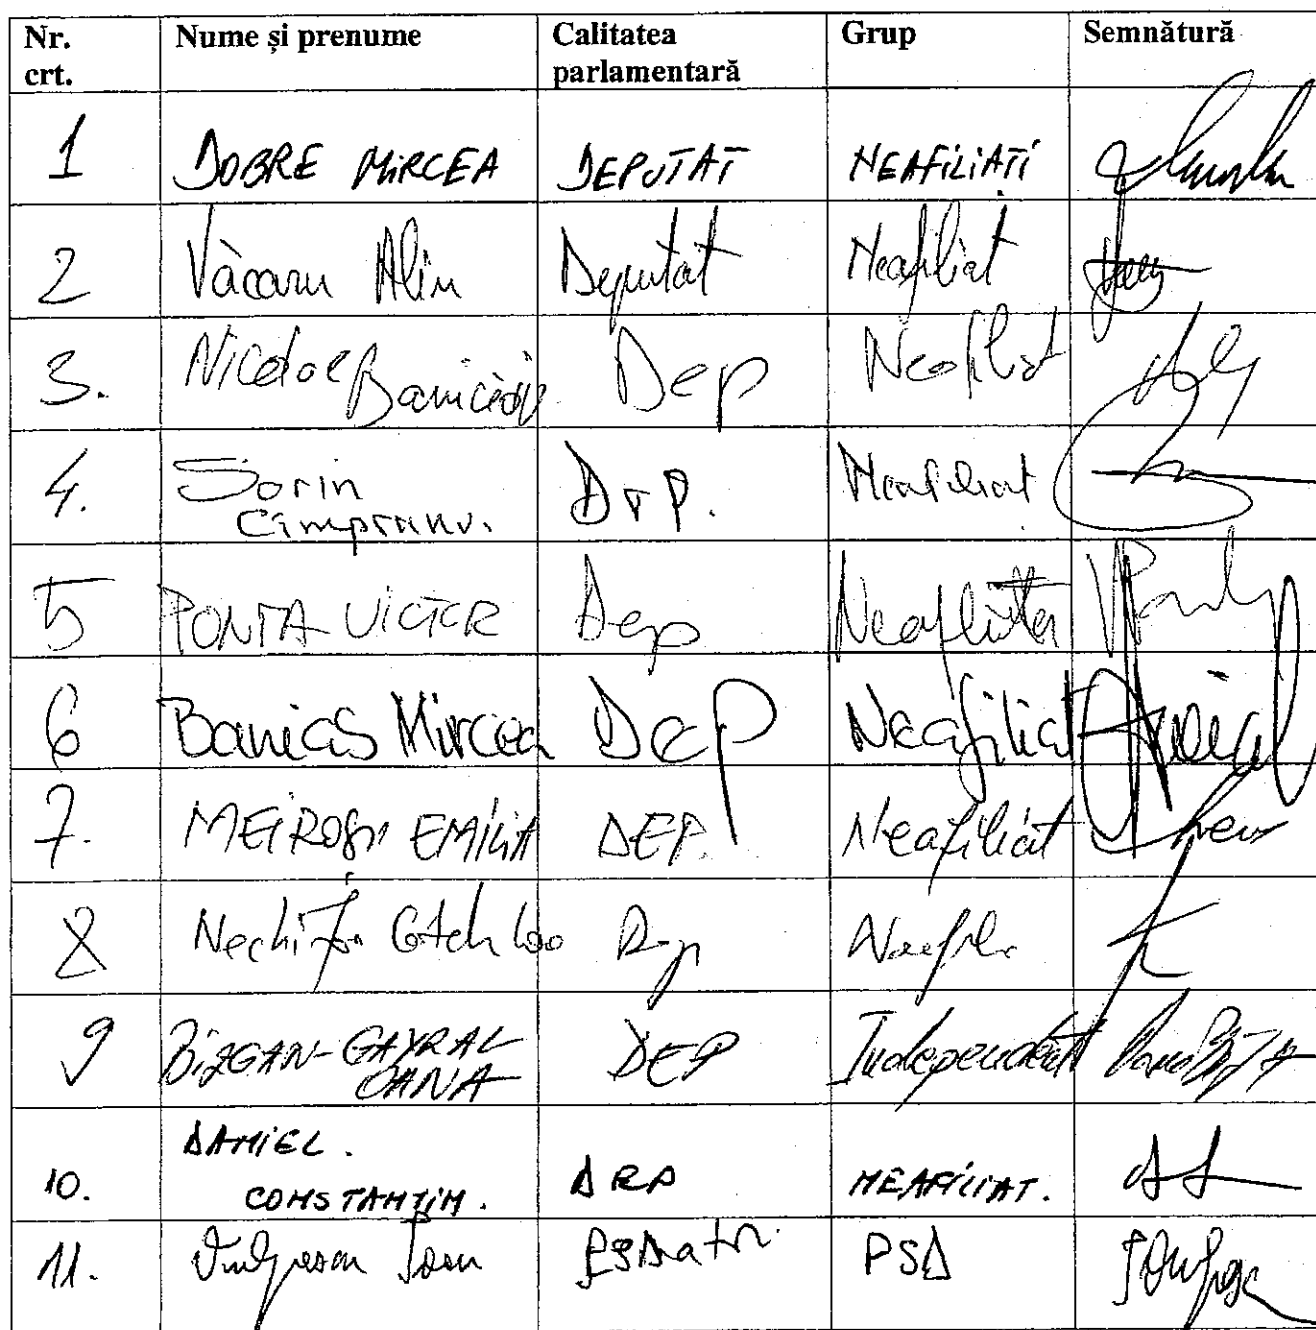 Nr. crt. Nume și prenume Calitatea parlamentară Grup Semnătură
1 DOBRE MIRCEA DEPUTAT NEAFILIAȚI
2 Văcaru Alin Deputat Neafiliat
3. Nicolae Bănicioiu Dep Neafiliat
4. Sorin Cîmpeanu. Dep. Neafiliat
5 PONTA VICTOR Dep
6 Banias Mircea Dep Neafiliat
7. MEIROȘU EMILIA DEP. Neafiliat
8 Nechifor Dep
9 BIZGAN-GAYRAL OANA DEP Independent
10. DANIEL. CONSTANTIN. DEP NEAFILIAT.
11. Vulpescu Ioan PSD